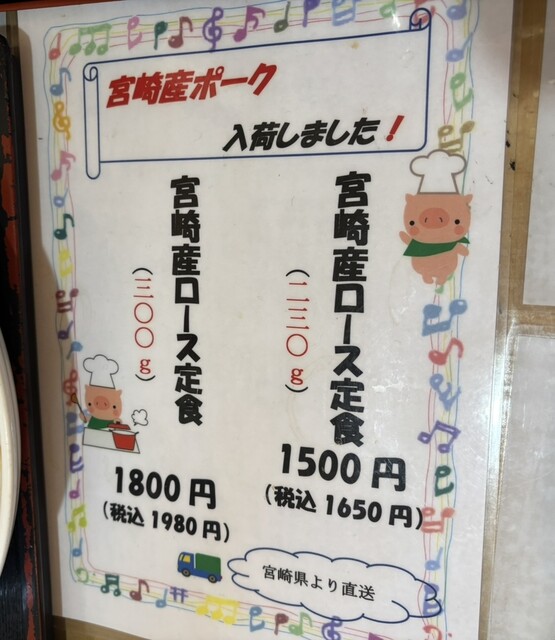 宮崎産ポーク
入荷しました！
宮崎産ロース定食
（二三〇ｇ）
1500円
（税込1650円）
宮崎産ロース定食
（三〇〇ｇ）
1800円
（税込1980円）
宮崎県より直送